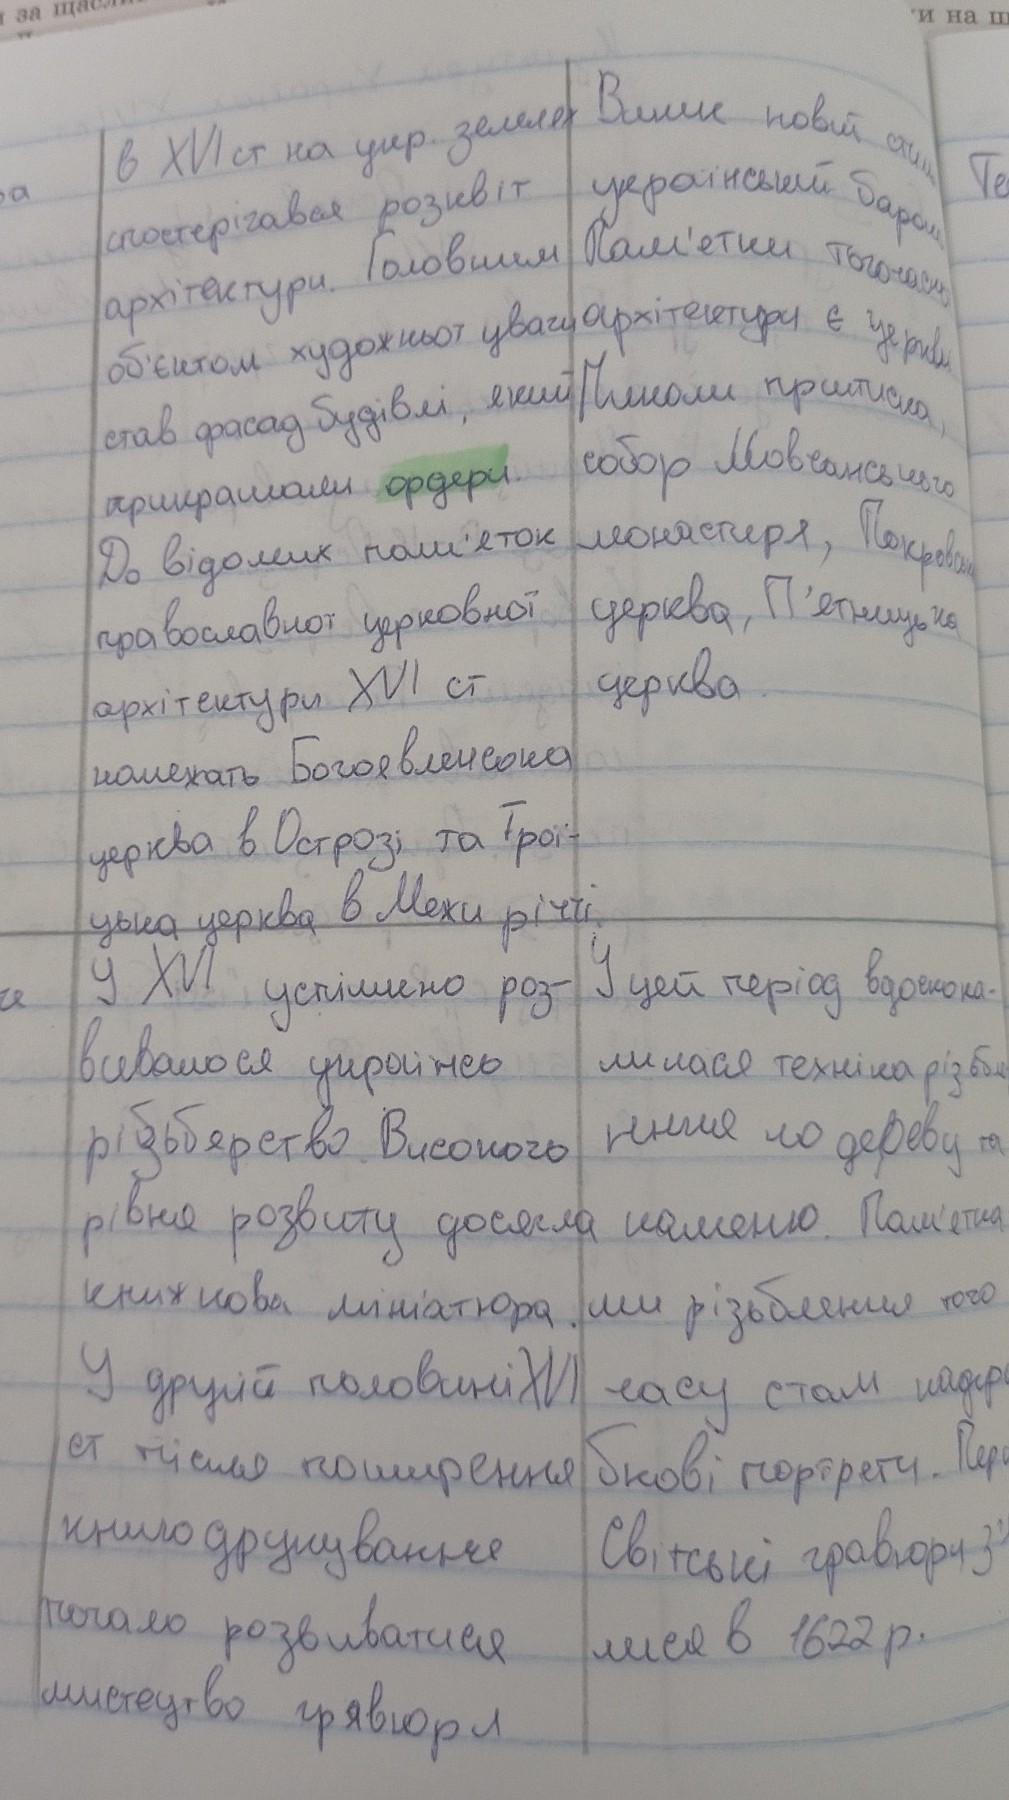 за щасли
и на щ
ра
в XVI ст на укр. землях
спостерігався розквіт
архітектури. Головним
об'єктом художньої уваги
став фасад будівлі, який
прикрашали ордери.
До відомих пам'яток
православної церковної
архітектури XVI ст
належать Богоявленська
церква в Острозі та Трої-
цька церква в Межи річчі.
Виник новий стиль
український барок
Пам'ятки тогочасно
архітектури є церкви
Миколи притиска,
собор Мовчанського
монастиря, Покровськ
церква, П'ятницька
церква.
Те
У XVI успішно роз-
вивалося українсь
різьбярство. Високого
рівня розвиту досягла
книжкова мініатюра.
У другій половині XVI
ст після поширення
книгодрукування
почало розвиватися
мистецтво грявюри
У цей період вдоскона-
лилася техніка різьбл
ння по дереву та
каменю. Пам'ятка
ми різьблення того
часу стали надгро
бкові портрети. Перш
Світські гравюри з'
лися в 1622 р.